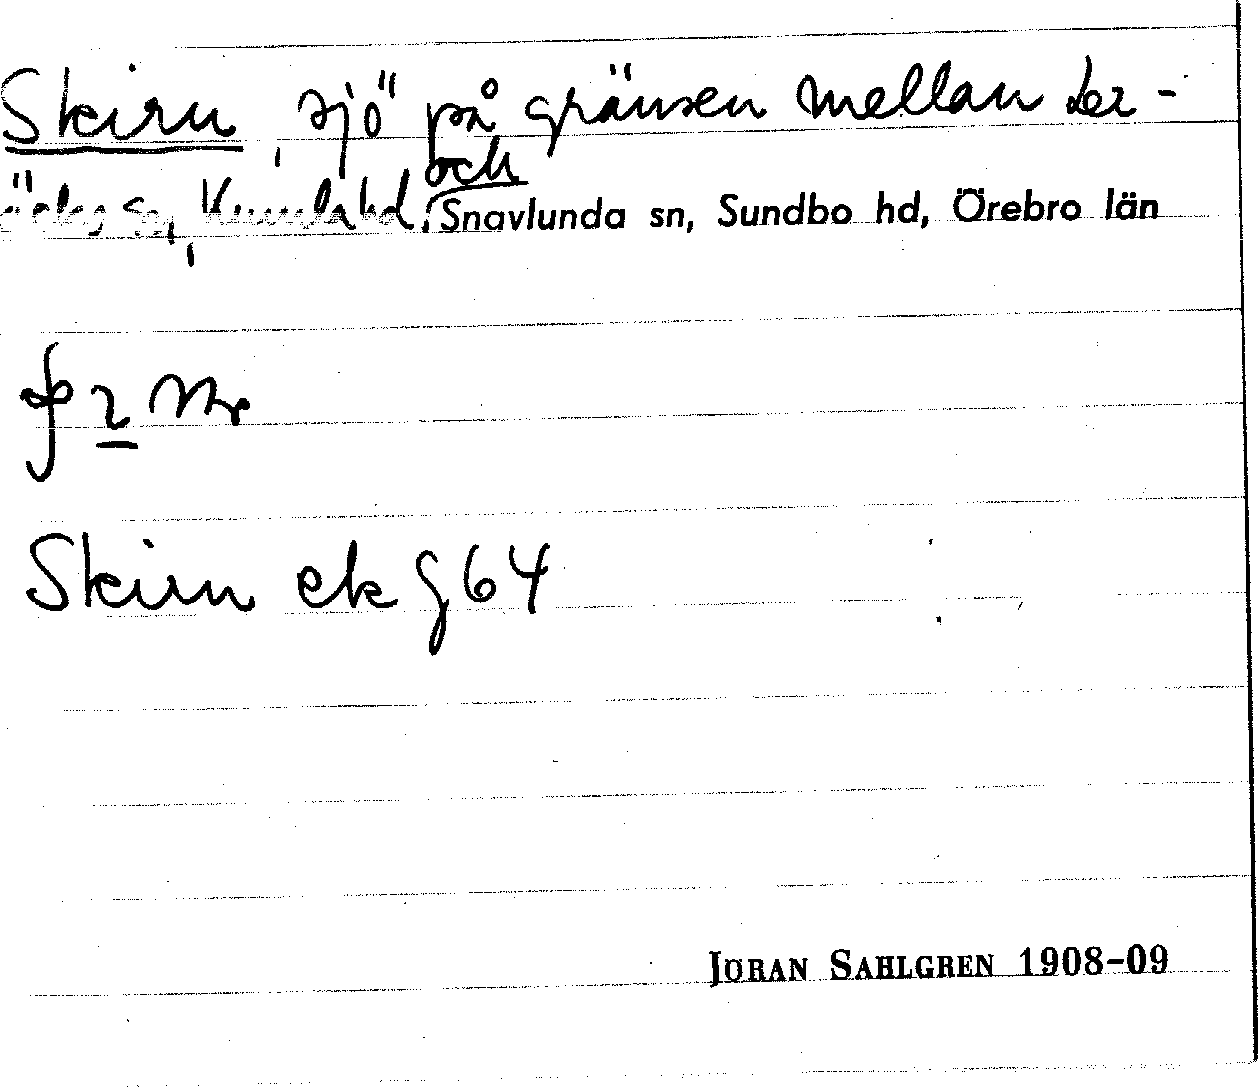 Skirn, sjö på gränsen mellan Ler-
bäcks sn, Kumla hd, och Snavlunda sn, Sundbo hd, Örebro län
Skirn ek G 64
JÖRAN SAHLGREN 1908-09